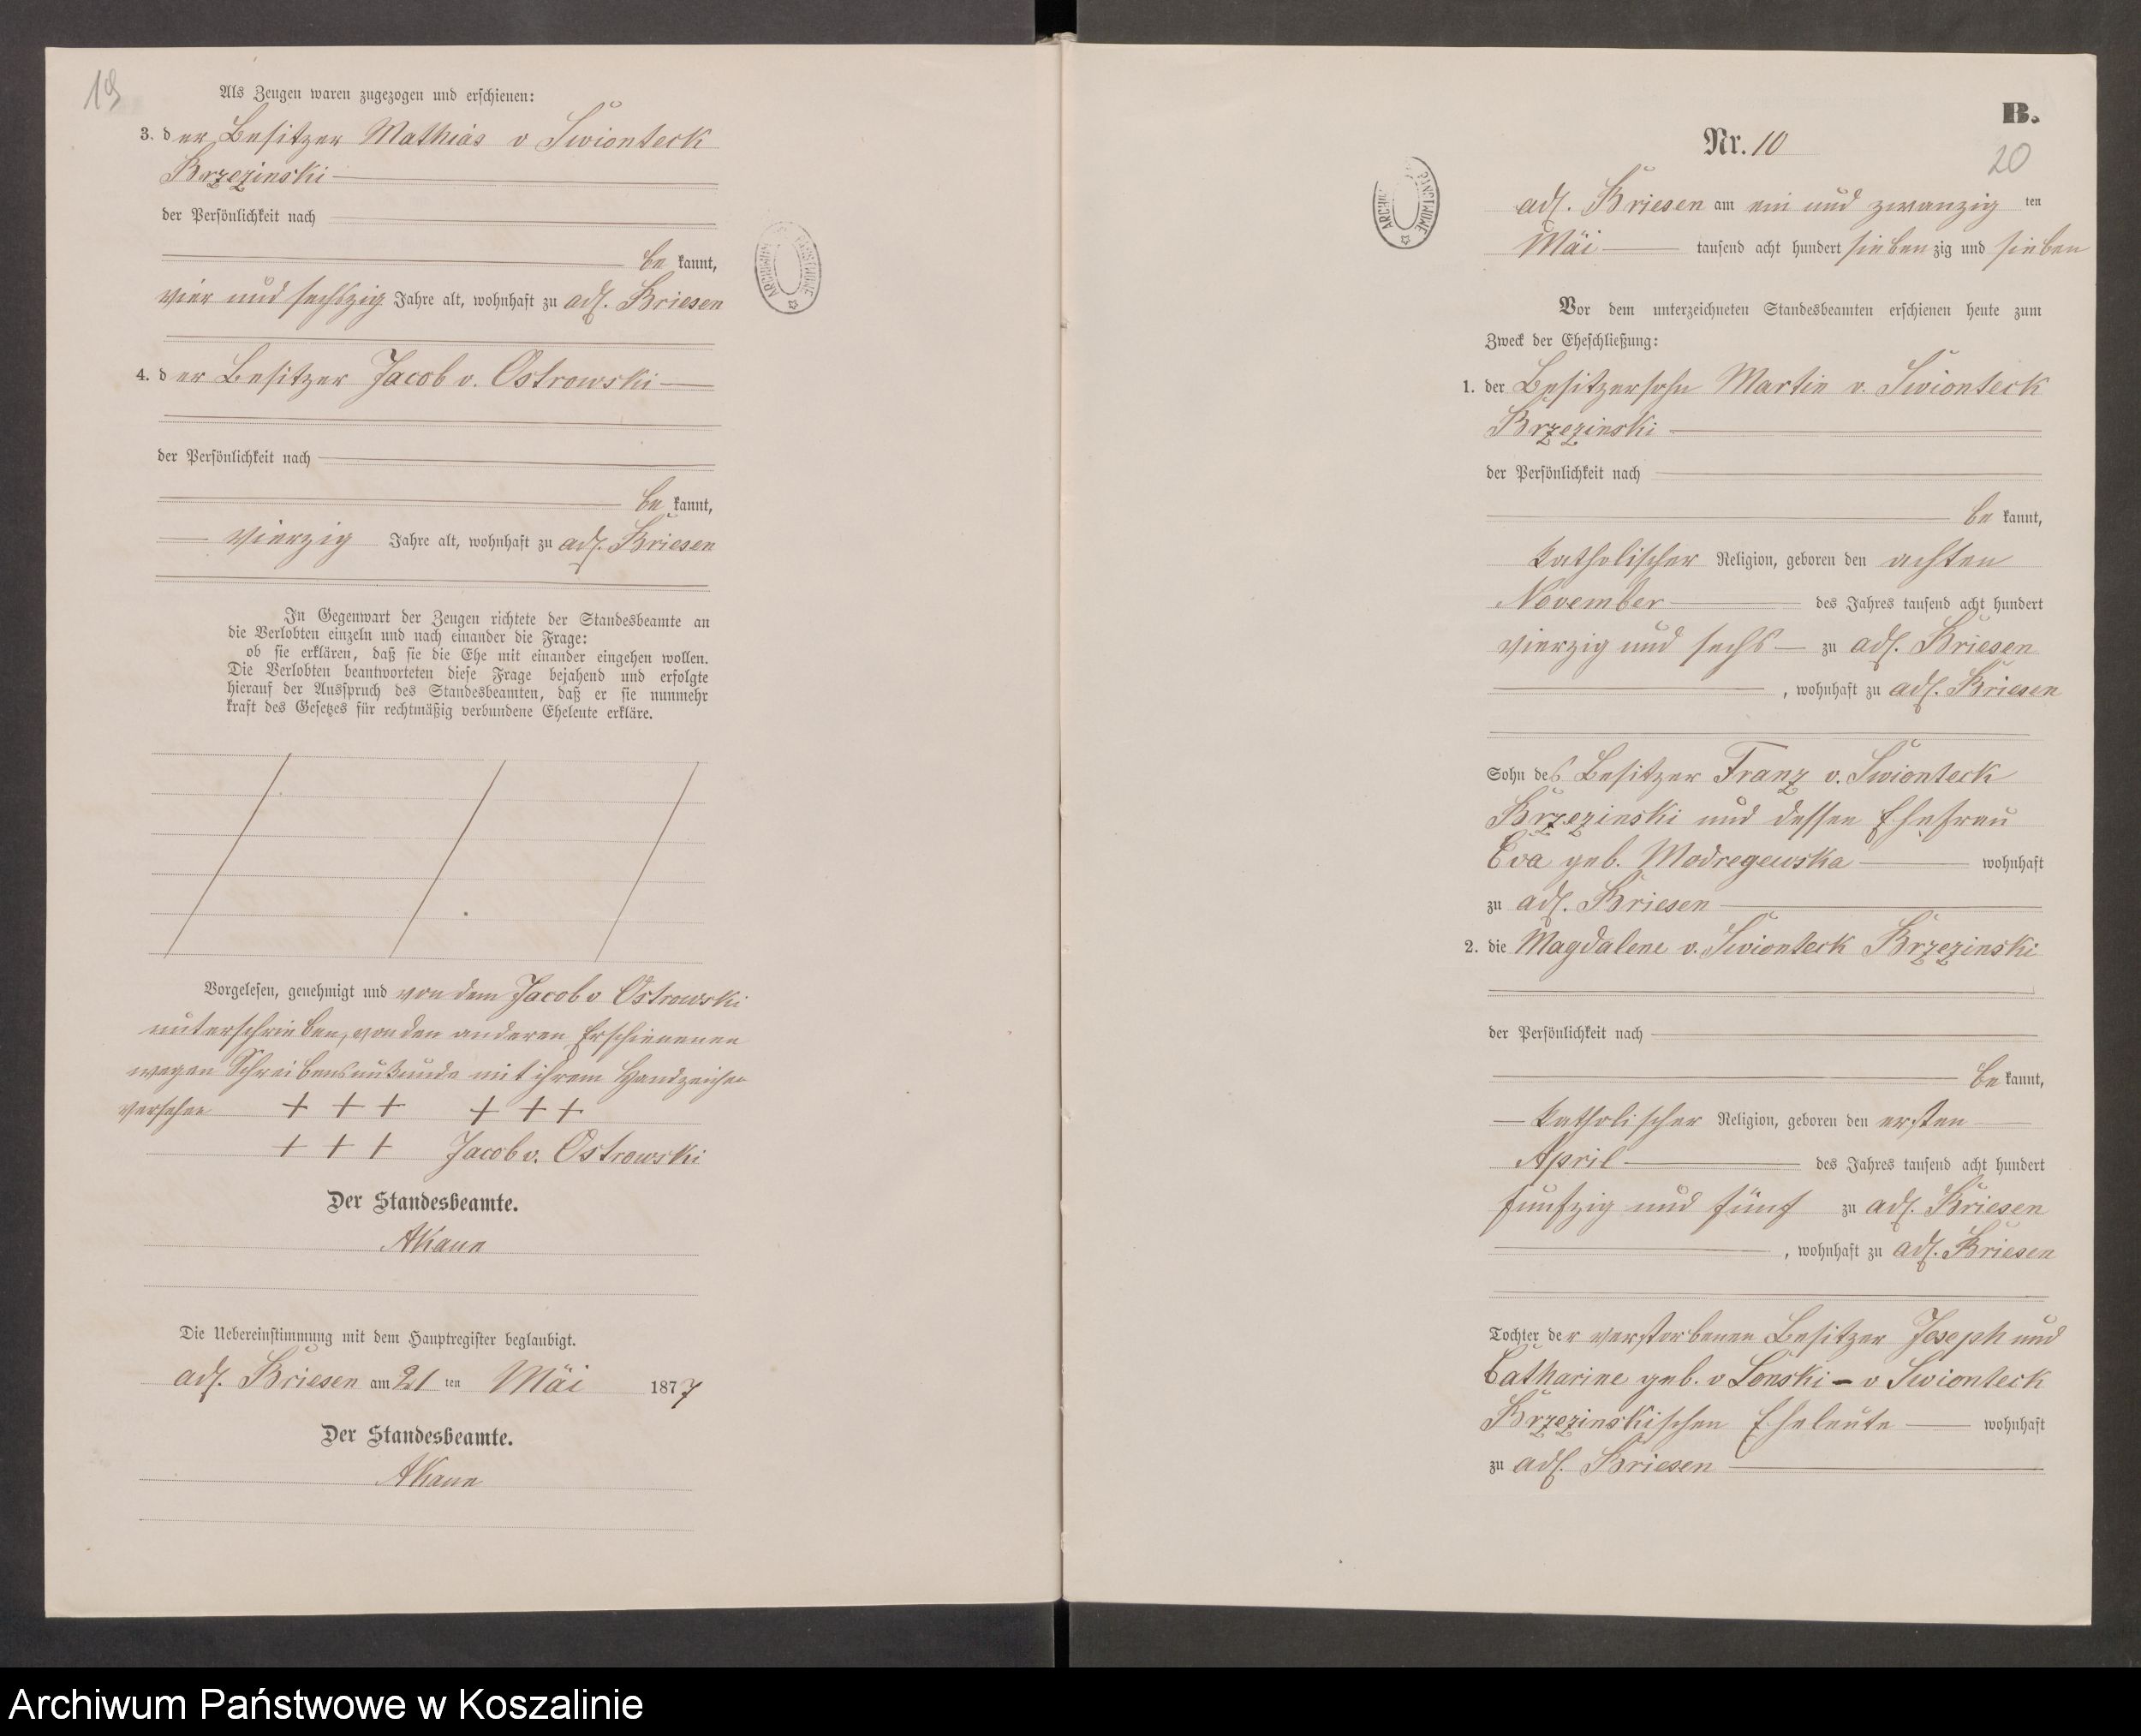 19
Als Zeugen waren zugezogen und erschienen:
3. der Besitzer Mathias v Swionteck
Brzezinski
der Persönlichkeit nach
be kannt,
vier und sechszig Jahre alt, wohnhaft zu adl. Briesen
4. der Besitzer Jacob v. Ostrowski
der Persönlichkeit nach
be kannt,
vierzig Jahre alt, wohnhaft zu adl. Briesen
In Gegenwart der Zeugen richtete der Standesbeamte an
die Verlobten einzeln und nach einander die Frage:
ob sie erklären, daß sie die Ehe mit einander eingehen wollen.
Die Verlobten beantworteten diese Frage bejahend und erfolgte
hierauf der Ausspruch des Standesbeamten, daß er sie nunmehr
kraft des Gesetzes für rechtmäßig verbundene Eheleute erkläre.
Vorgelesen, genehmigt und von dem Jacob v Ostrowski
unterschrieben, von den anderen Erschienenen
wegen Schreibensunkunde mit ihrem Handzeichen
versehen + + + + + +
+ + + Jacob v. Ostrowski
Der Standesbeamte.
AKann
Die Uebereinstimmung mit dem Hauptregister beglaubigt.
adl. Briesen am 21 ten Mai 1877
Der Standesbeamte.
AKann
B.
Nr. 10
20
adl. Briesen am ein und zwanzig ten
Mai tausend acht hundert siebenzig und sieben
Vor dem unterzeichneten Standesbeamten erschienen heute zum
Zweck der Eheschließung:
1. der Besitzersohn Martin v. Swionteck
Brzezinski
der Persönlichkeit nach
be kannt,
katholischer Religion, geboren den achten
November des Jahres tausend acht hundert
vierzig und sechs zu adl. Briesen
, wohnhaft zu adl. Briesen
Sohn des Besitzer Franz v. Swionteck
Brzezinski und dessen Ehefrau
Eva geb. Modregewska wohnhaft
zu adl. Briesen
2. die Magdalene v. Swionteck Brzezinski
der Persönlichkeit nach
be kannt,
katholischer Religion, geboren den ersten
April des Jahres tausend acht hundert
funfzig und fünf zu adl. Briesen
, wohnhaft zu adl. Briesen
Tochter der verstorbenen Besitzer Joseph und
Catharine geb. v Lonski - v Swionteck
Brzezinskischen Eheleute wohnhaft
zu adl. Briesen
Archiwum Państwowe w Koszalinie